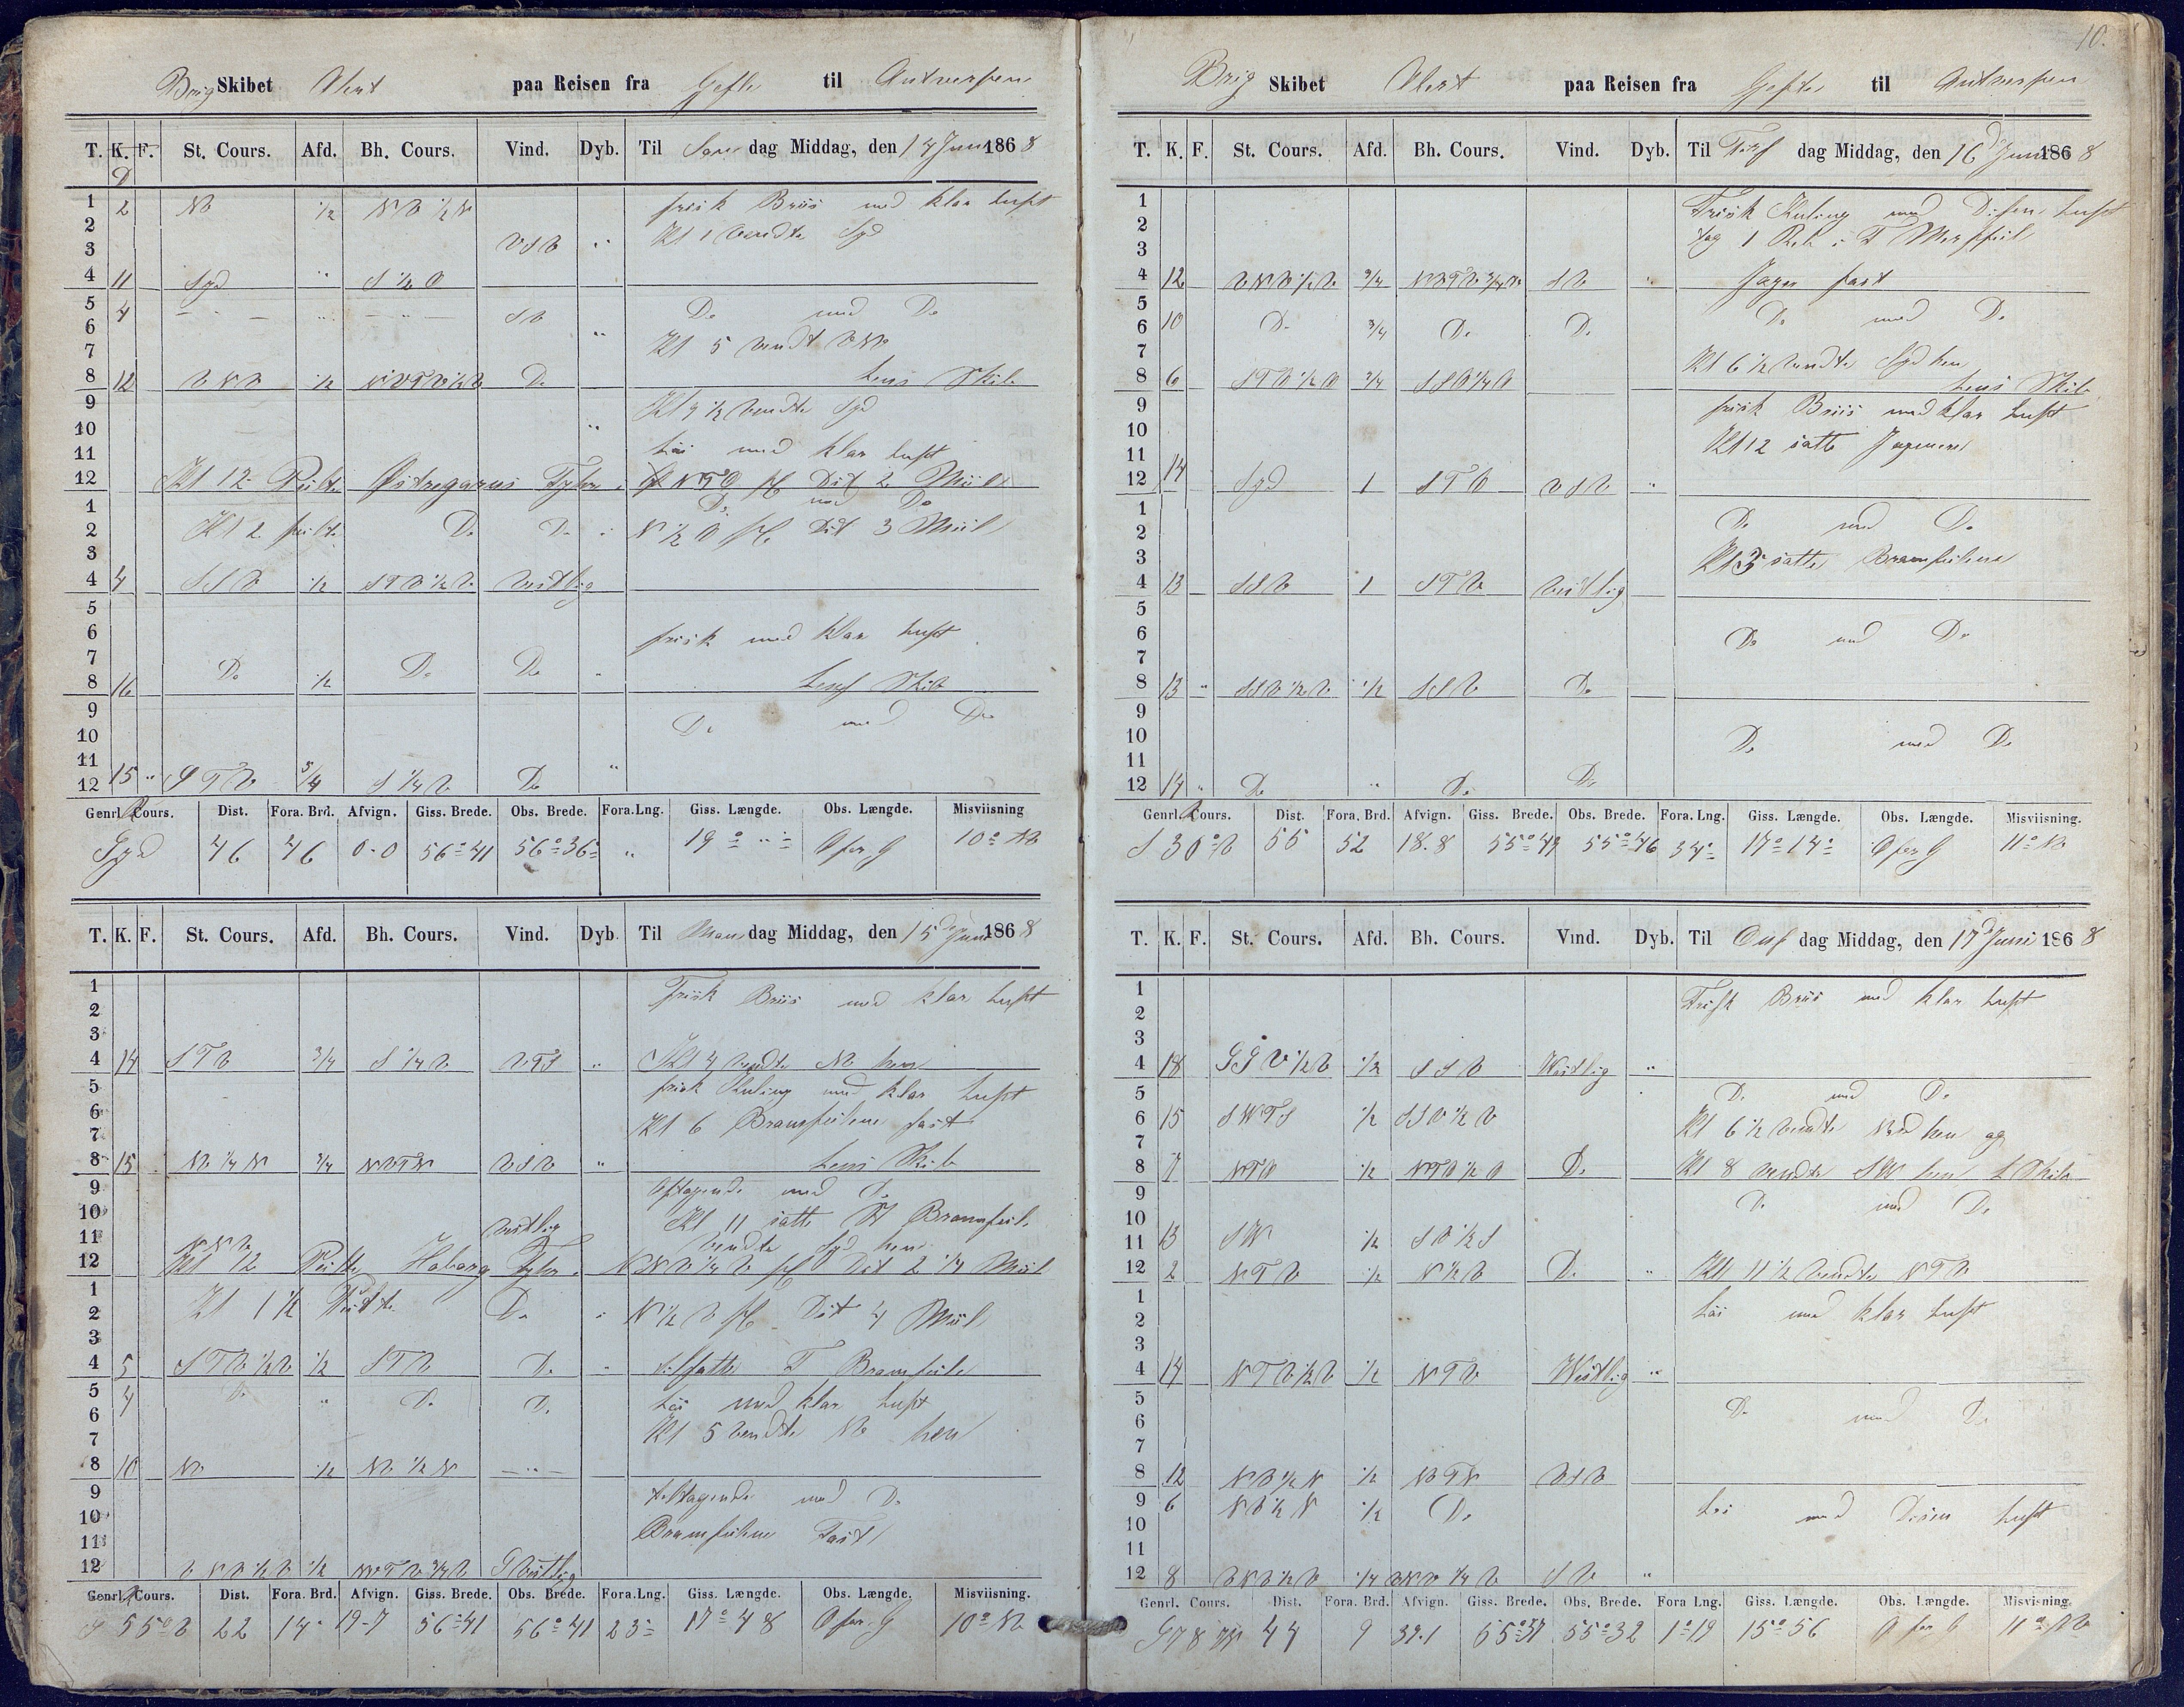 Brig Skibet Vlert paa Reisen fra Gefle til Antverpen
T. K. F. St. Cours. Afd. Bh. Cours. Vind. Dyb. Til Søn dag Middag, den 14 Juni 1868
1 2 NV 1/2 NV 1/2 N frisk Briis med klar Luft
2 Kl 1 vendte Syd
3 VSV "
4 11 Syd " S 1/2 O
5 4 — " — " — " — SV Do med Do
6 "
7 Kl 5 vendt VNV
8 12 VNV 1/2 NVTV 1/2 V Do Lens Skib
9 Kl 9 1/2 vendte Syd
10 "
11 Løi med klar Luft
12 Kl 12 Peilte Østregarns Fyhr i NTO pC Dist 2 Miil
1 Do med Do
2 Kl 2 peilte Do Do i N 1/2 O pC Dist 3 Miil
3
4 4 SSV 1/2 STV 1/2 V Vestlig
5
6 frisk med klar Luft
7 Do 1/2 Do Do "
8 16 Lens Skib
9 Do med Do
10
11
12 15 " STV 3/4 S 1/4 V Do "
Genrl. Cours. Dist. Fora. Brd. Afvign. Giss. Brede. Obs. Brede. Fora.Lng. Giss. Længde. Obs. Længde. Misviisning
Syd 46 46 0-0 56° 41 56° 36 " 19° " O for G 10° NV
T. K. F. St. Cours. Afd. Bh. Cours. Vind. Dyb. Til Man dag Middag, den 15 Juni 1868
1 Frisk Briis med klar Luft
2
3
4 14 STV 3/4 S 1/4 V VTS " Kl 4 vendte NV hen
5 frisk Kuling med klar Luft
6 Kl 6 Bramseilene fast
7
8 15 NV 1/4 N 3/4 NVTN VSV " Lens Skib
9 Aftagende med Do
10 Kl 11 satte St Bramseil
11 NNV Vestlig vendte Syd hen
12 Kl 12 Peilte Hoborg Fyhr i NNV 1/4 V pC Dist 2 1/4 Miil
1 Kl 1 1/2 Peilte Do i N 1/2 V pC Dist 4 Miil
2
3
4 5 STV 1/2 V 1/2 STV Do " tilsatte F Bramseil
5 4 Do " Do Do Løi med klar Luft
6 Kl 5 vendte NV hen
7
8 10 NV 1/2 NV 1/2 N — " —
9 tiltagende med Do
10 Bramseilene Fast
11
12 VNV 1/2 V 1/2 NVTV 3/4 V S Vestlig
Genrl. Cours. Dist. Fora. Brd. Afvign. Giss. Brede. Obs. Brede. Fora.Lng. Giss. Længde. Obs. Længde. Misviisning.
S 55° V 22 14 19-7 56° 41 56° 41 23 17° 48 O for G 10° NV
10.
Brig Skibet Vlert paa Reisen fra Gefle til Antverpen
T. K. F. St. Cours. Afd. Bh. Cours. Vind. Dyb. Til Tirs dag Middag, den 16 Juni 1868
1 Frisk Kuling med Disen Luft
2 tog 1 Reb i F Mersseil
3
4 12 VNV 1/2 V 3/4 NVTV 3/4 V SV " Jager fast
5 Do med Do
6 10 Do 3/4 Do Do
7 Kl 6 1/2 vendte Syd hen
8 6 STO 1/2 O 3/4 SSO 1/4 O Lens Skib
9 frisk Briis med klar Luft
10 Kl 12 satte Jageren
11
12 14 Syd 1 STO VSV "
1 Do med Do
2
3 Kl 3 satte Bramseilene
4 13 SSV 1 STV Vestlig
5
6 Do med Do
7
8 13 " SSV 1/2 V 1/2 SSV Do
9
10 Do med Do
11
12 14 " Do " Do Do
Genrl. Cours. Dist. Fora. Brd. Afvign. Giss. Brede. Obs. Brede. Fora. Lng. Giss. Længde. Obs. Længde. Misviisning.
S 30° V 55 52 18.8 55° 49 55° 46 34 17° 14 O for G 11° NV
T. K. F. St. Cours. Afd. Bh. Cours. Vind. Dyb. Til Ons dag Middag, den 17 Juni 1868
1 Frisk Briis med klar Luft
2
3
4 18 SSV 1/2 V 1/2 SSV Westlig "
5 Do med Do
6 15 SWTS 1/2 SSV 1/2 V Kl 6 1/2 vendte Nord hen og
7
8 7 NTV 1/2 NTV 1/2 O Do Kl 8 vendte SW hen L Skib
9 Do med Do
10
11 13 SW 1/2 SV 1/2 S
12 2 NTV 1/2 N 1/2 V Do " Kl 11 1/2 vendte NTV
1 Løi med klar Luft
2
3
4 14 NTV 1/2 V 1/2 NTV Westlig "
5 Do med Do
6
7
8 12 NV 1/2 N 1/2 NVTN VSV
9 6 NV 1/2 N 1/2 Do Løi med Disen Luft
10
11
12 8 VNV 1/2 V 1/4 VNV 1/4 V SV "
Genrl. Cours. Dist. Fora. Brd. Afvign. Giss. Brede. Obs. Brede. Fora Lng. Giss. Længde. Obs. Længde. Misvisning.
S 78 W 44 9 39.1 55° 37 55° 32 1° 19 15° 56 O for G 11° NV